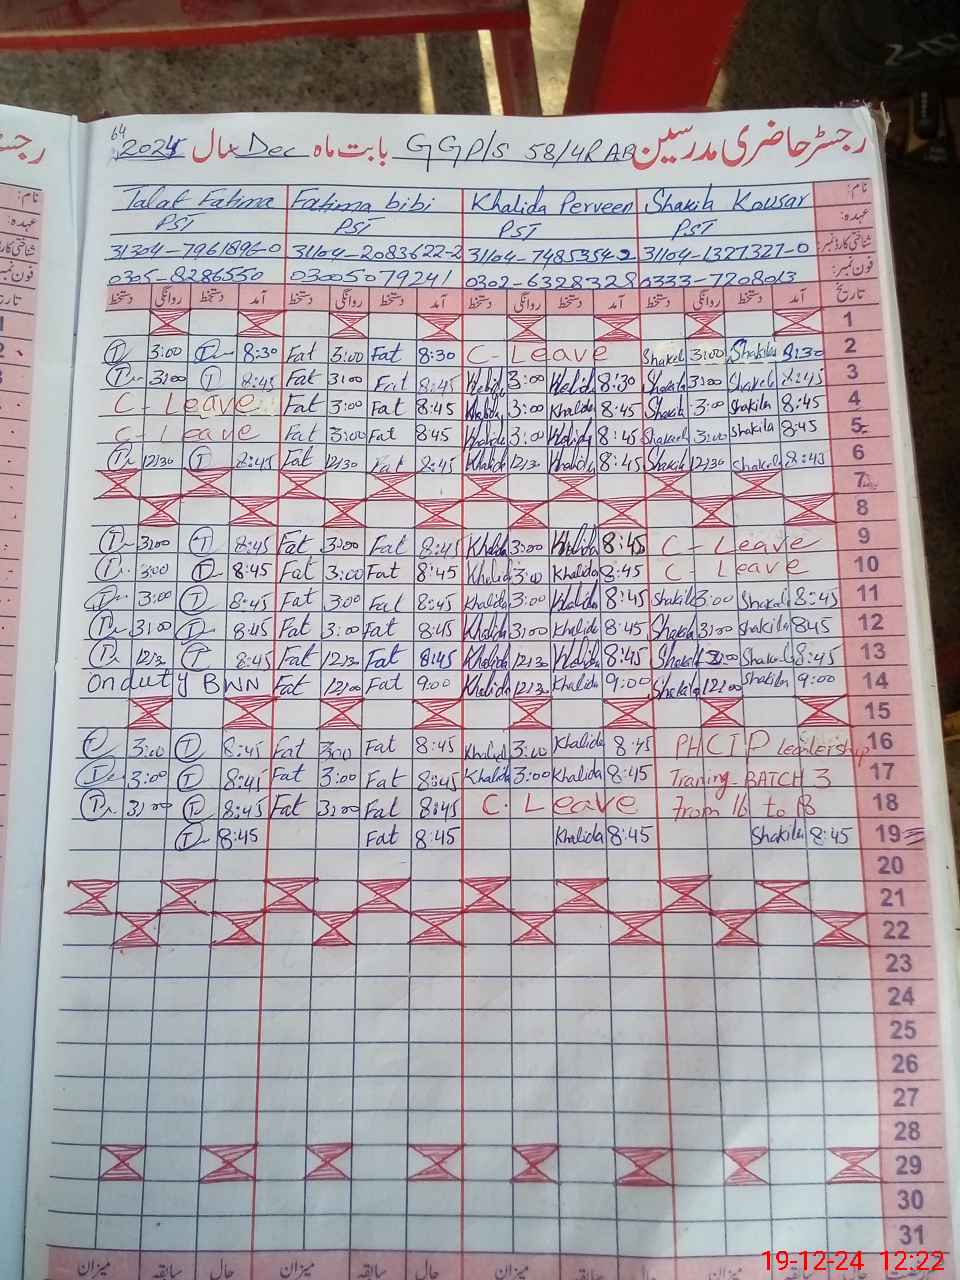 64
رجسٹر حاضری مدرسین GGP/S 58/4R AB بابت ماہ Dec سال 2024
نام: Talat Fatima Fatima bibi Khalida Perveen Shakila Kousar
عہدہ: PST PST PST PST
شناختی کارڈ نمبر: 31304-7961896-0 31104-2083622-2 31104-7485354-2 31104-1327327-0
فون نمبر: 0305-8286550 03005079241 0302-6328328 0333-7208013
تاریخ آمد دستخط روانگی دستخط آمد دستخط روانگی دستخط آمد دستخط روانگی دستخط آمد دستخط روانگی دستخط
1
T 3:00 T 8:30 Fat 3:00 Fat 8:30 C-Leave Shakila 3:00 Shakila 8:30 2
T 3:00 T 8:45 Fat 3:00 Fat 8:45 Khalida 3:00 Khalida 8:30 Shakila 3:00 Shakila 8:45 3
C-Leave Fat 3:00 Fat 8:45 Khalida 3:00 Khalida 8:45 Shakila 3:00 Shakila 8:45 4
C-Leave Fat 3:00 Fat 8:45 Khalida 3:00 Khalida 8:45 Shakila 3:00 Shakila 8:45 5
T 12:30 T 8:45 Fat 12:30 Fat 8:45 Khalida 12:30 Khalida 8:45 Shakila 12:30 Shakila 8:45 6
7
8
T 3:00 T 8:45 Fat 3:00 Fat 8:45 Khalida 3:00 Khalida 8:45 C-Leave 9
T 3:00 T 8:45 Fat 3:00 Fat 8:45 Khalida 3:00 Khalida 8:45 C-Leave 10
T 3:00 T 8:45 Fat 3:00 Fat 8:45 Khalida 3:00 Khalida 8:45 Shakila 3:00 Shakila 8:45 11
T 3:00 T 8:45 Fat 3:00 Fat 8:45 Khalida 3:00 Khalida 8:45 Shakila 3:00 Shakila 8:45 12
T 12:30 T 8:45 Fat 12:30 Fat 8:45 Khalida 12:30 Khalida 8:45 Shakila Shakila 8:45 13
On duty BWN Fat 12:00 Fat 9:00 Khalida 12:30 Khalida 9:00 Shakila 12:00 Shakila 9:00 14
15
T 3:00 T 8:45 Fat 3:00 Fat 8:45 Khalida 3:00 Khalida 8:45 PHCIP leadership 16
T 3:00 T 8:45 Fat 3:00 Fat 8:45 Khalida 3:00 Khalida 8:45 Traning-BATCH 3 17
T 3:00 T 8:45 Fat 3:00 Fat 8:45 C-Leave From 16 to 18 18
T 8:45 Fat 8:45 Khalida 8:45 Shakila 8:45 19
20
21
22
23
24
25
26
27
28
29
30
31
حال سابقہ میزان حال سابقہ میزان حال سابقہ میزان
19-12-24 12:22